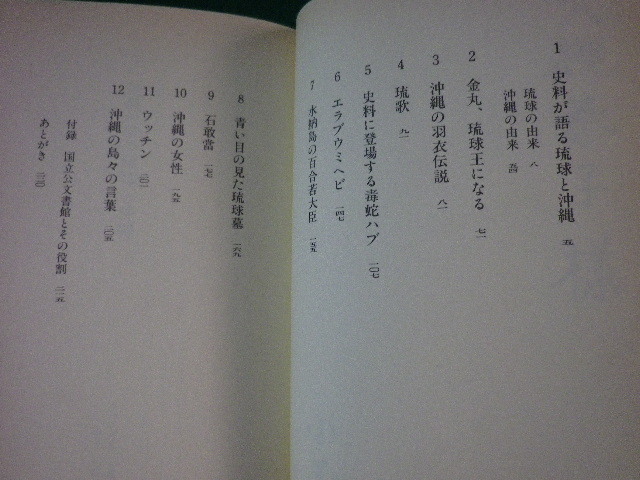 1 史料が語る琉球と沖縄 五
琉球の由来 八
沖縄の由来 五四
2 金丸、琉球王になる 七一
3 沖縄の羽衣伝説 八一
4 琉歌 九一
5 史料に登場する毒蛇ハブ 一〇七
6 エラブウミヘビ 一四七
7 水納島の百合若大臣 一五九
8 青い目の見た琉球墓 一六九
9 石敢當 一七七
10 沖縄の女性 一九五
11 ウッチン 二〇一
12 沖縄の島々の言葉 二〇五
付録 国立公文書館とその役割 二一五
あとがき